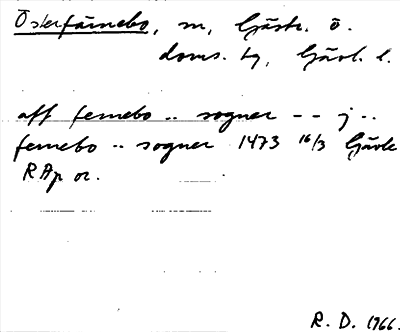 Österfärnebo, sn, Gästr. ö.
doms. hg, Gävl. l.
aff fernebo .. sogner -- j ..
fernebo .. sogner 1473 16/3 Gävle
RAp or.
R. D. 1966.